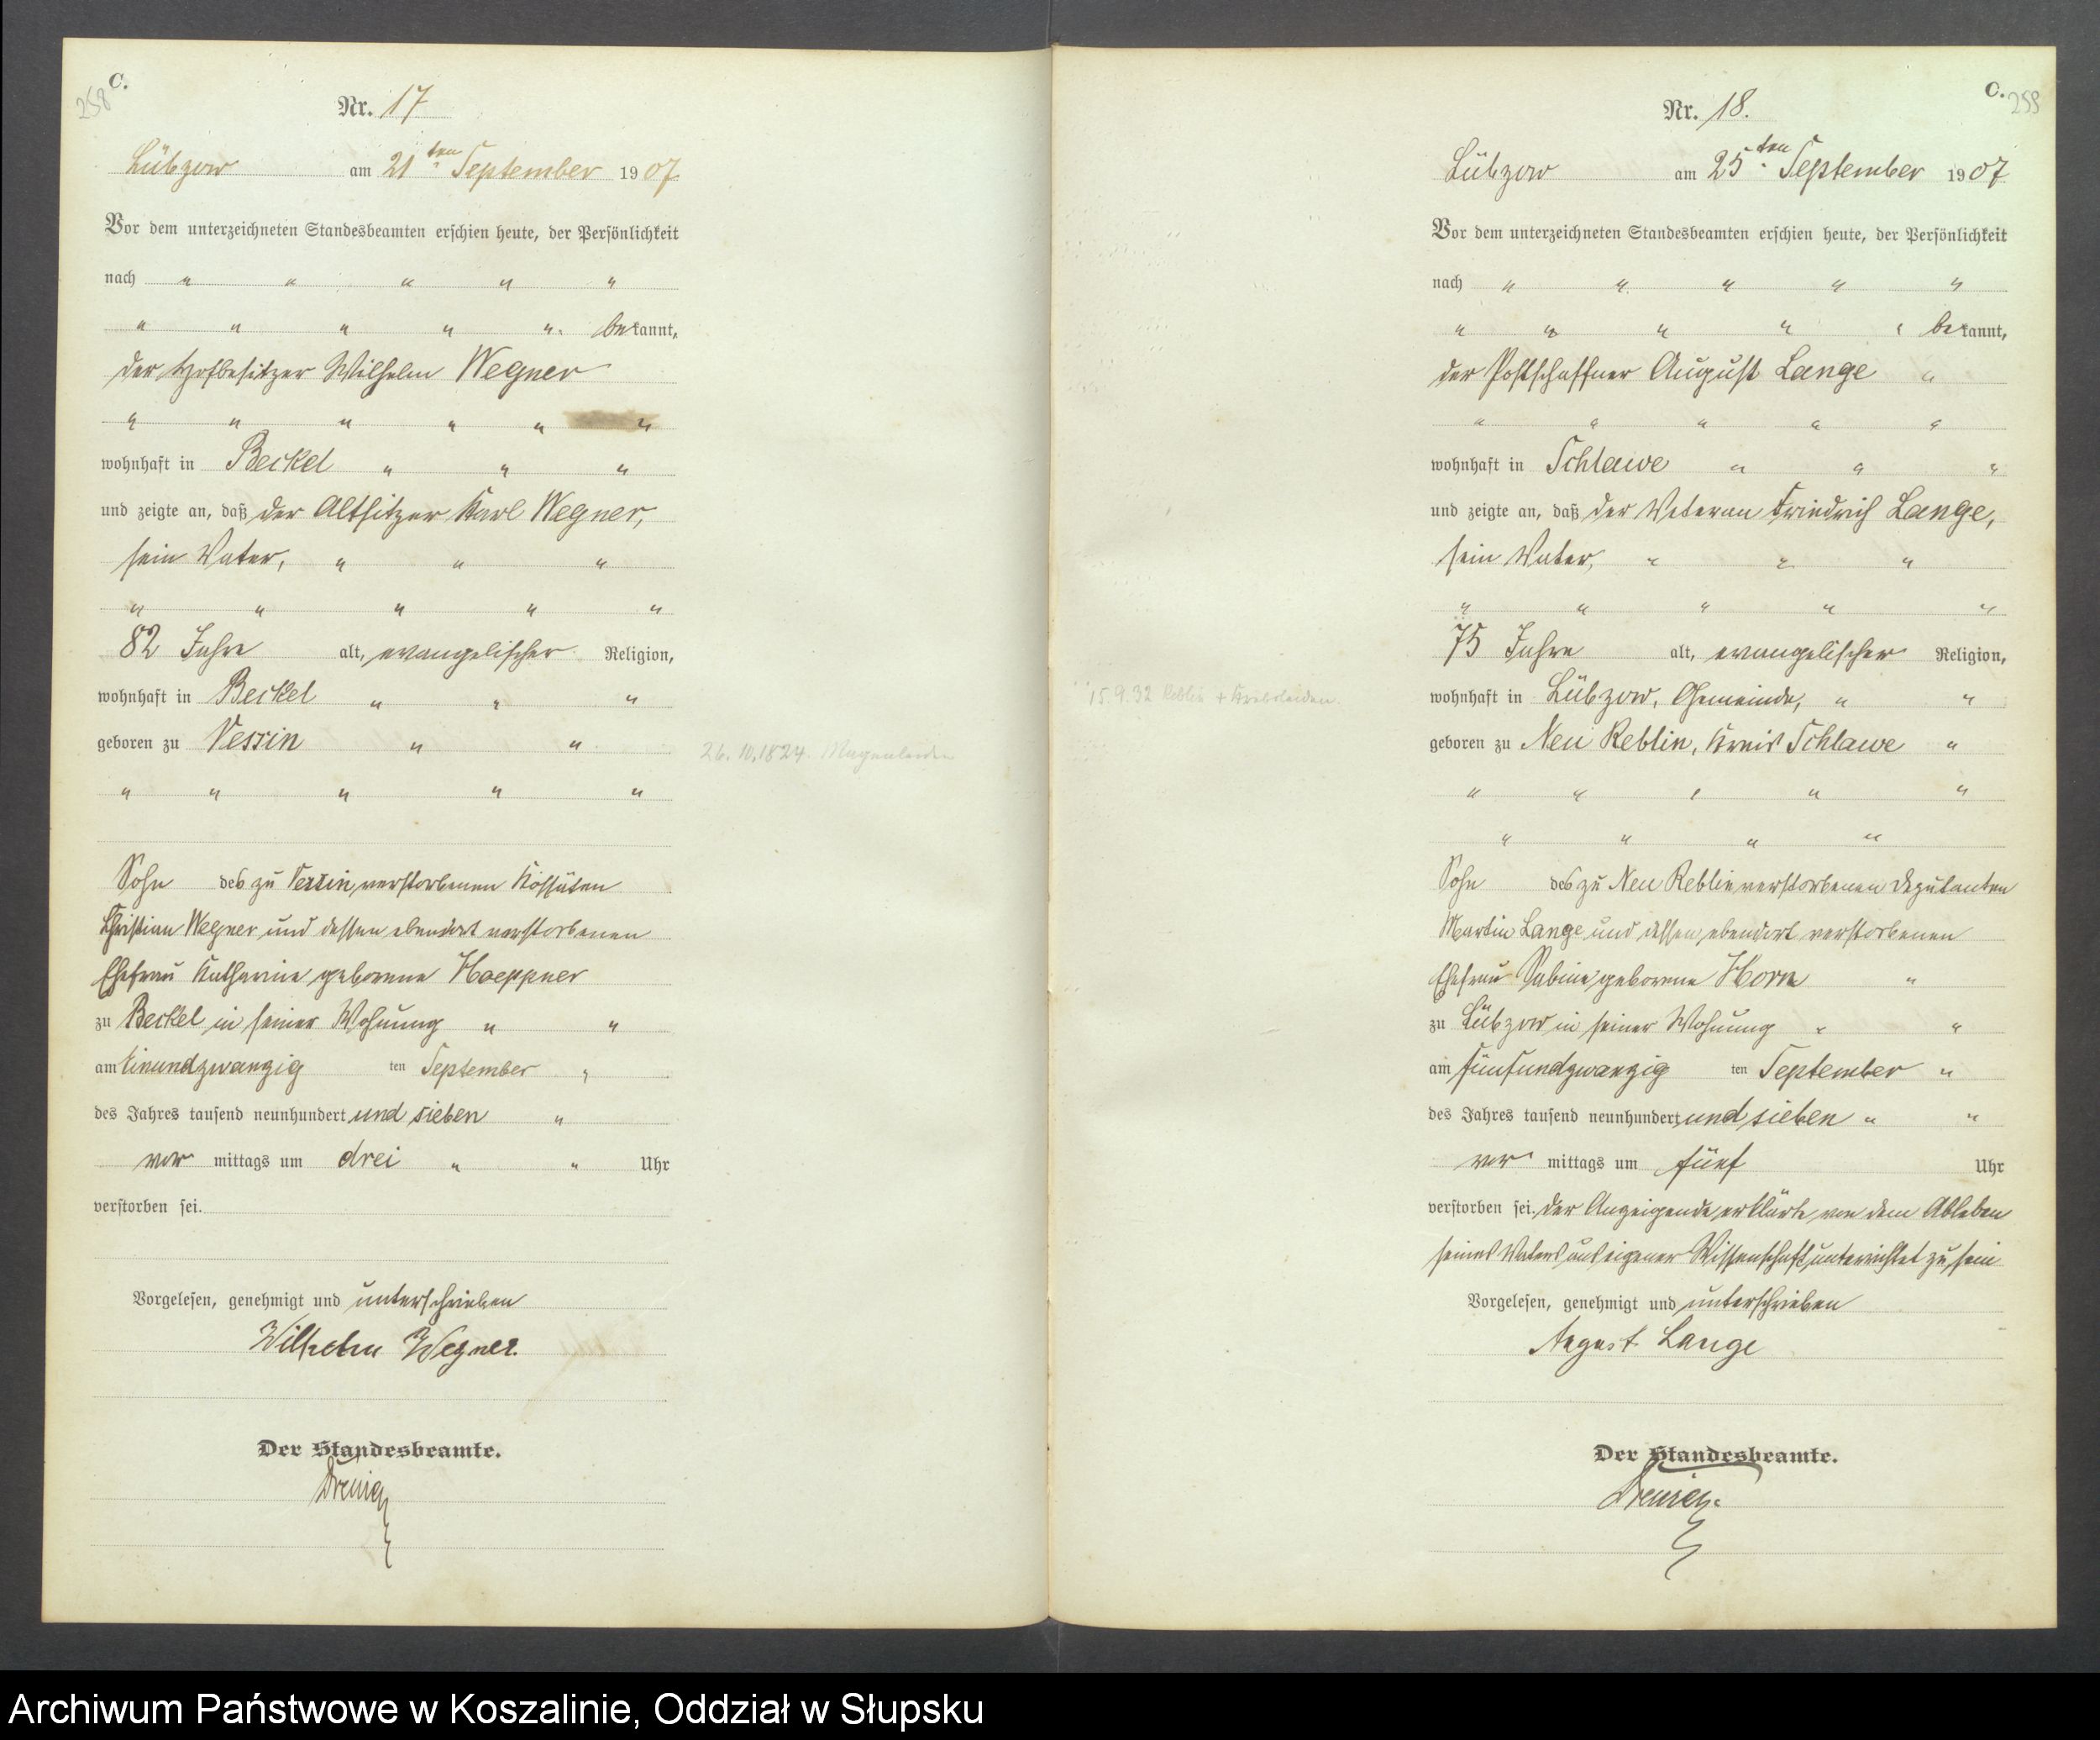 258
C.
Nr. 17
Lübzow am 21ten September 1907
Vor dem unterzeichneten Standesbeamten erschien heute, der Persönlichkeit
nach " " " " "
" " " " " bekannt,
der Hofbesitzer Wilhelm Wegner
" " " " " "
wohnhaft in Beckel " " "
und zeigte an, daß der Altsitzer Karl Wegner,
sein Vater, " " "
" " " " "
82 Jahre alt, evangelischer Religion,
wohnhaft in Beckel " " "
geboren zu Vessin " "
26.10.1824. Magenleiden
" " " " "
Sohn des zu Vessin verstorbenen Kossäten
Christian Wegner und dessen ebendort verstorbenen
Ehefrau Katharine geborene Hoeppner
zu Beckel in seiner Wohnung " "
am Einundzwanzig ten September "
des Jahres tausend neunhundert und sieben "
vor mittags um drei " " Uhr
verstorben sei.
Vorgelesen, genehmigt und unterschrieben
Wilhelm Wegner.
Der Standesbeamte.
C. 259
Nr. 18.
Lübzow am 25ten September 1907
Vor dem unterzeichneten Standesbeamten erschien heute, der Persönlichkeit
nach " " " " "
" " " " " bekannt,
der Postschaffner August Lange "
" " " " "
wohnhaft in Schlawe " " "
und zeigte an, daß der Veteran Friedrich Lange,
sein Vater, " " "
" " " " "
75 Jahre alt, evangelischer Religion,
15.9.32 Reblin + Krebsleiden.
wohnhaft in Lübzow, Gemeinde, " "
geboren zu Neu Reblin, Kreis Schlawe "
" " " " "
" " " "
Sohn des zu Neu Reblin verstorbenen Deputanten
Martin Lange und dessen ebendort verstorbenen
Ehefrau Sabine geborene Horn "
zu Lübzow in seiner Wohnung " "
am fünfundzwanzig ten September "
des Jahres tausend neunhundert und sieben " "
vor mittags um fünf Uhr
verstorben sei. Der Anzeigende erklärte von dem Ableben
seines Vaters aus eigener Wissenschaft unterrichtet zu sein
Vorgelesen, genehmigt und unterschrieben
August Lange
Der Standesbeamte.
Archiwum Państwowe w Koszalinie, Oddział w Słupsku